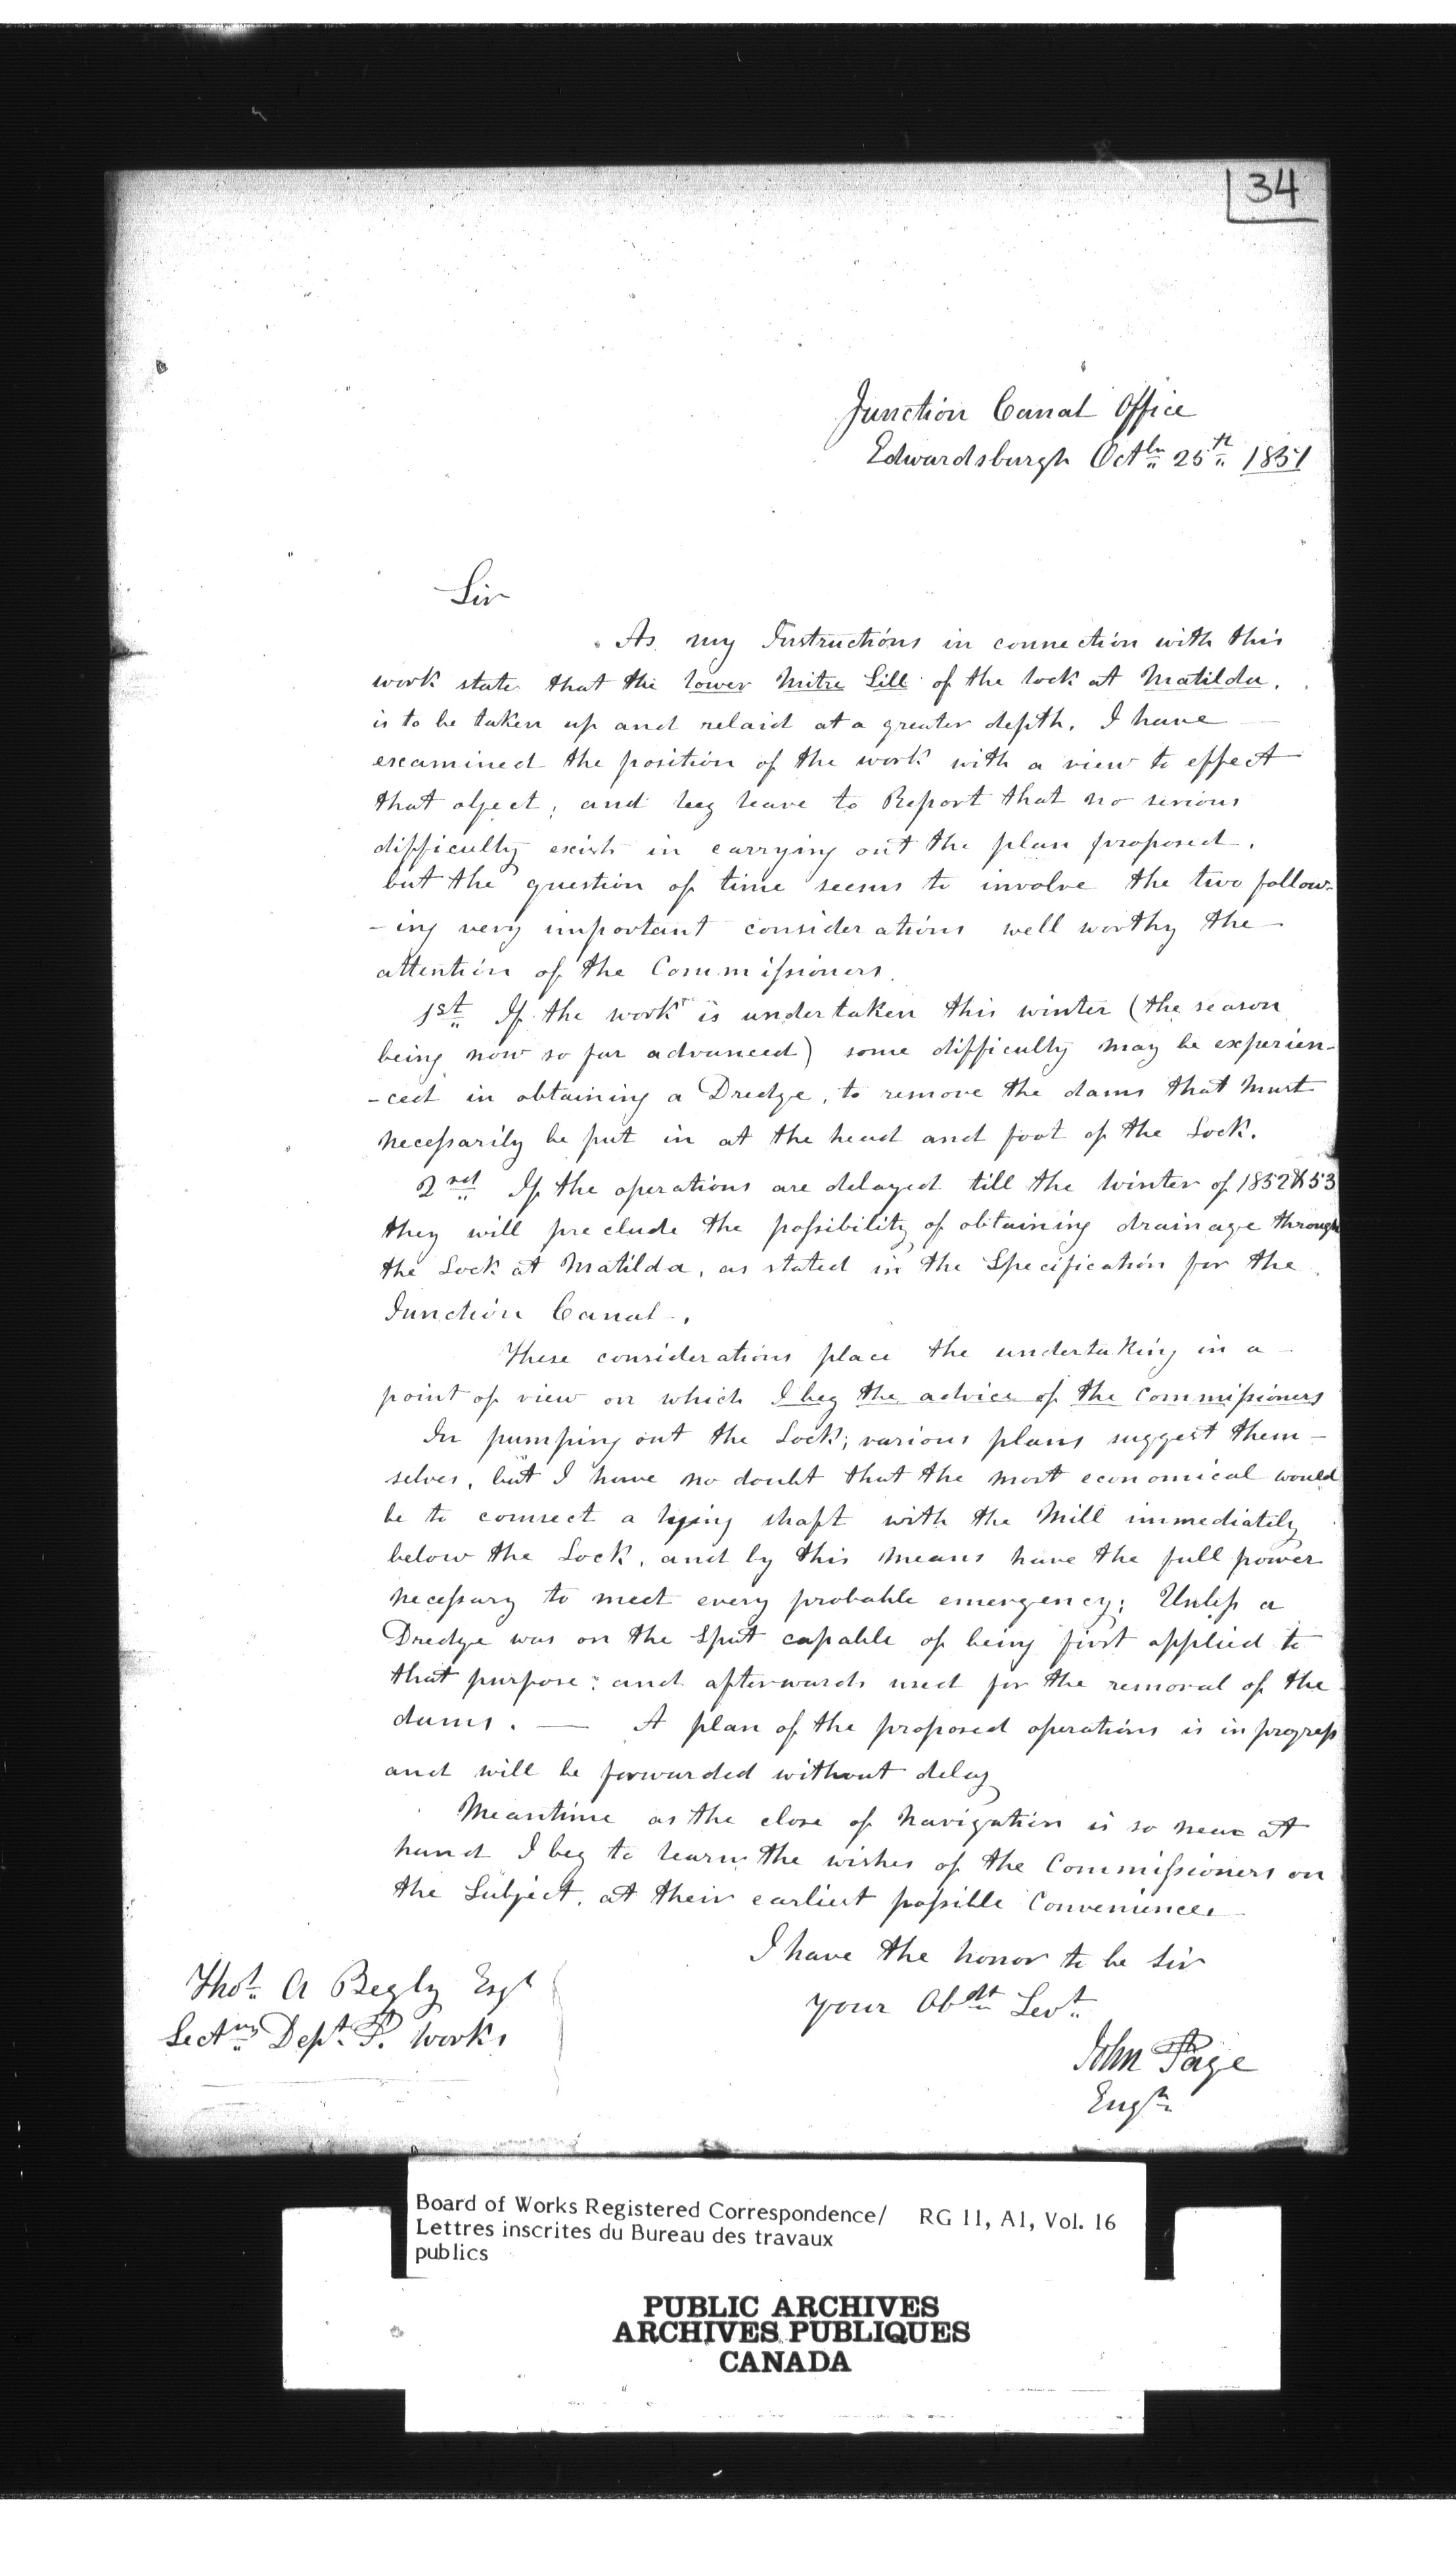 34
Junction Canal Office
Edwardsburgh Octbr 25th 1851
Sir
As my Instructions in connection with this
work state that the lower Mitre Sill of the lock at Matilda,
is to be taken up and relaid at a greater depth. I have
examined the position of the work with a view to effect
that object; and beg leave to Report that no serious
difficulty exists in carrying out the plan proposed,
but the question of time seems to involve the two follow-
-ing very important considerations well worthy the
attention of the Commissioners.
1st If the work is undertaken this winter (the season
being now so far advanced) some difficulty may be experien-
-ced in obtaining a Dredge, to remove the dams that must
necessarily be put in at the head and foot of the Lock.
2nd If the operations are delayed till the Winter of 1852 & 53
they will preclude the possibility of obtaining drainage through
the Lock at Matilda, as stated in the Specification for the
Junction Canal.
These considerations place the undertaking in a
point of view on which I beg the advice of the Commissioners
In pumping out the Lock; various plans suggest them-
selves, but I have no doubt that the most economical would
be to connect a lying shaft with the Mill immediately
below the Lock, and by this means have the full power
necessary to meet every probable emergency; Unless a
Dredge was on the Spot capable of being first applied to
that purpose; and afterwards used for the removal of the
dams. — A plan of the proposed operations is in progress
and will be forwarded without delay
Meantime as the close of Navigation is so near at
hand I beg to learn the wishes of the Commissioners on
the Subject, at their earliest possible Convenience
I have the honor to be Sir
your Obdt Servt
John Page
Engr
Thos A Begly Esqr
Secty Dept P. Works
Board of Works Registered Correspondence/ RG 11, A1, Vol. 16
Lettres inscrites du Bureau des travaux
publics
PUBLIC ARCHIVES
ARCHIVES PUBLIQUES
CANADA